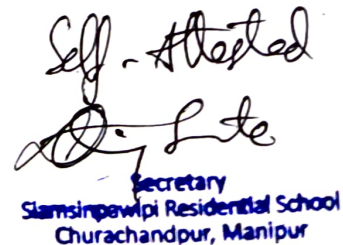 Self-Attested
Secretary
Siamsinpawlpi Residential School
Churachandpur, Manipur